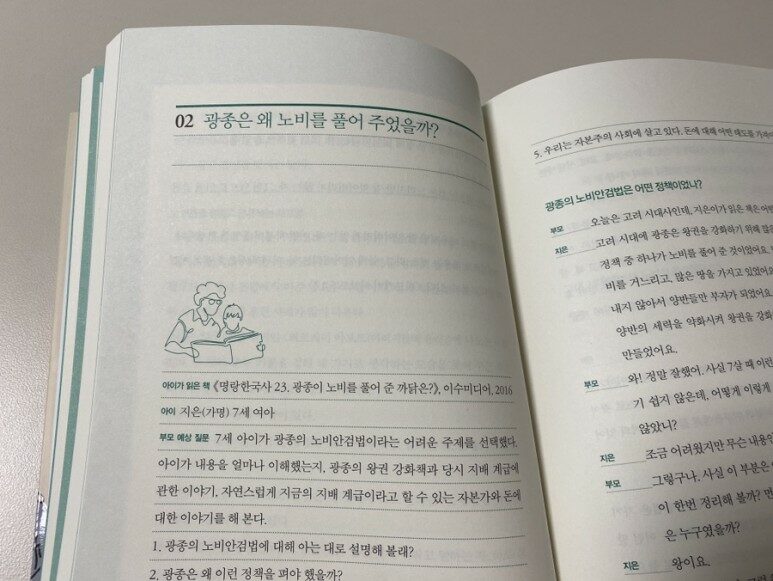 02 광종은 왜 노비를 풀어 주었을까?
아이가 읽은 책 《명랑한국사 23. 광종이 노비를 풀어 준 까닭은?》, 이수미디어, 2016
아이 지은(가명) 7세 여아
부모 예상 질문 7세 아이가 광종의 노비안검법이라는 어려운 주제를 선택했다.
아이가 내용을 얼마나 이해했는지, 광종의 왕권 강화책과 당시 지배 계급에
관한 이야기, 자연스럽게 지금의 지배 계급이라고 할 수 있는 자본가와 돈에
대한 이야기를 해 본다.
1. 광종의 노비안검법에 대해 아는 대로 설명해 볼래?
2. 광종은 왜 이런 정책을 펴야 했을까?
5. 우리는 자본주의 사회에 살고 있다. 돈에 대해 어떤 태도를
광종의 노비안검법은 어떤 정책이었나?
부모 오늘은 고려 시대사인데, 지은이가 읽은 책은
지은 고려 시대에 광종은 왕권을 강화하기 위해
정책 중 하나가 노비를 풀어 준 것이었어요.
비를 거느리고, 많은 땅을 가지고 있었
내지 않아서 양반들만 부자가 되었어요.
양반의 세력을 약화시켜 왕권을
만들었어요.
부모 와! 정말 잘했어. 사실 7살 때 이런
기 쉽지 않은데, 어떻게 이렇게
않았니?
지은 조금 어려웠지만 무슨 내용인
부모 그렇구나. 사실 이 부분은
이 한번 정리해 볼까?
은 누구였을까?
지은 왕이요.